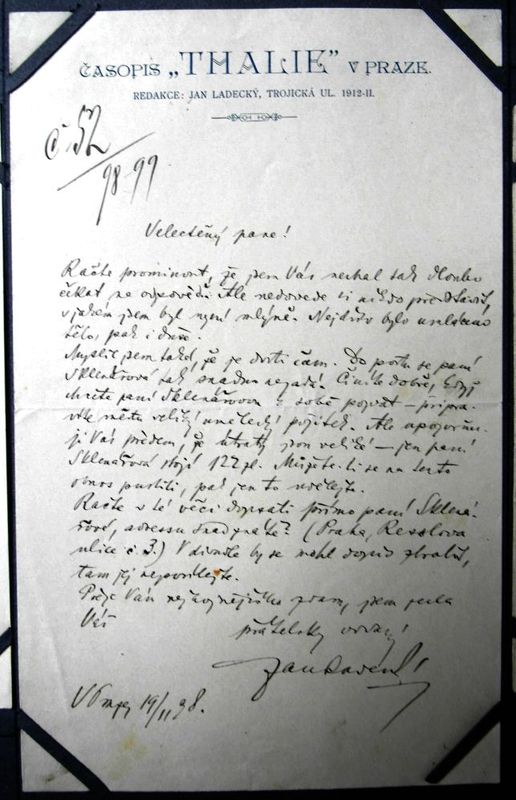 ČASOPIS „THALIE” V PRAZE.
REDAKCE: JAN LADECKÝ, TROJICKÁ UL. 1912-II.
98-99
Velectěný pane!
Račte prominout, že jsem Vás nechal tak dlouho
čekat na odpověď. Ale nedovede si nikdo představit,
v jakém jsem byl nyní mlýně. Nejdřív bylo unaveno
tělo, pak i duše.
Myslil jsem také, že je dosti času. Do se paní
Sklenářová tak snadno nezadá. Činíte dobře, když
chcete paní Sklenářovou k sobě pozvat — připra-
víte městu veliký umělecký požitek. Ale upozorňu-
ji Vás předem, že útraty jsou veliké — jen paní
Sklenářová stojí 122 zl. Můžete-li se na tento
obnos pustiti, pak jen to udělejte.
Račte v té věci dopsati přímo paní Sklená-
řové, adressu snad znáte? (Praha, Resslova
ulice č. 3.) V divadle by se mohl dopis ztratit,
tam jej neposílejte.
Přeje Vám nejhojnějšího zdaru, jsem zcela
Váš přátelsky oddaný
Jan Ladecký
V Praze, 19/11 98.